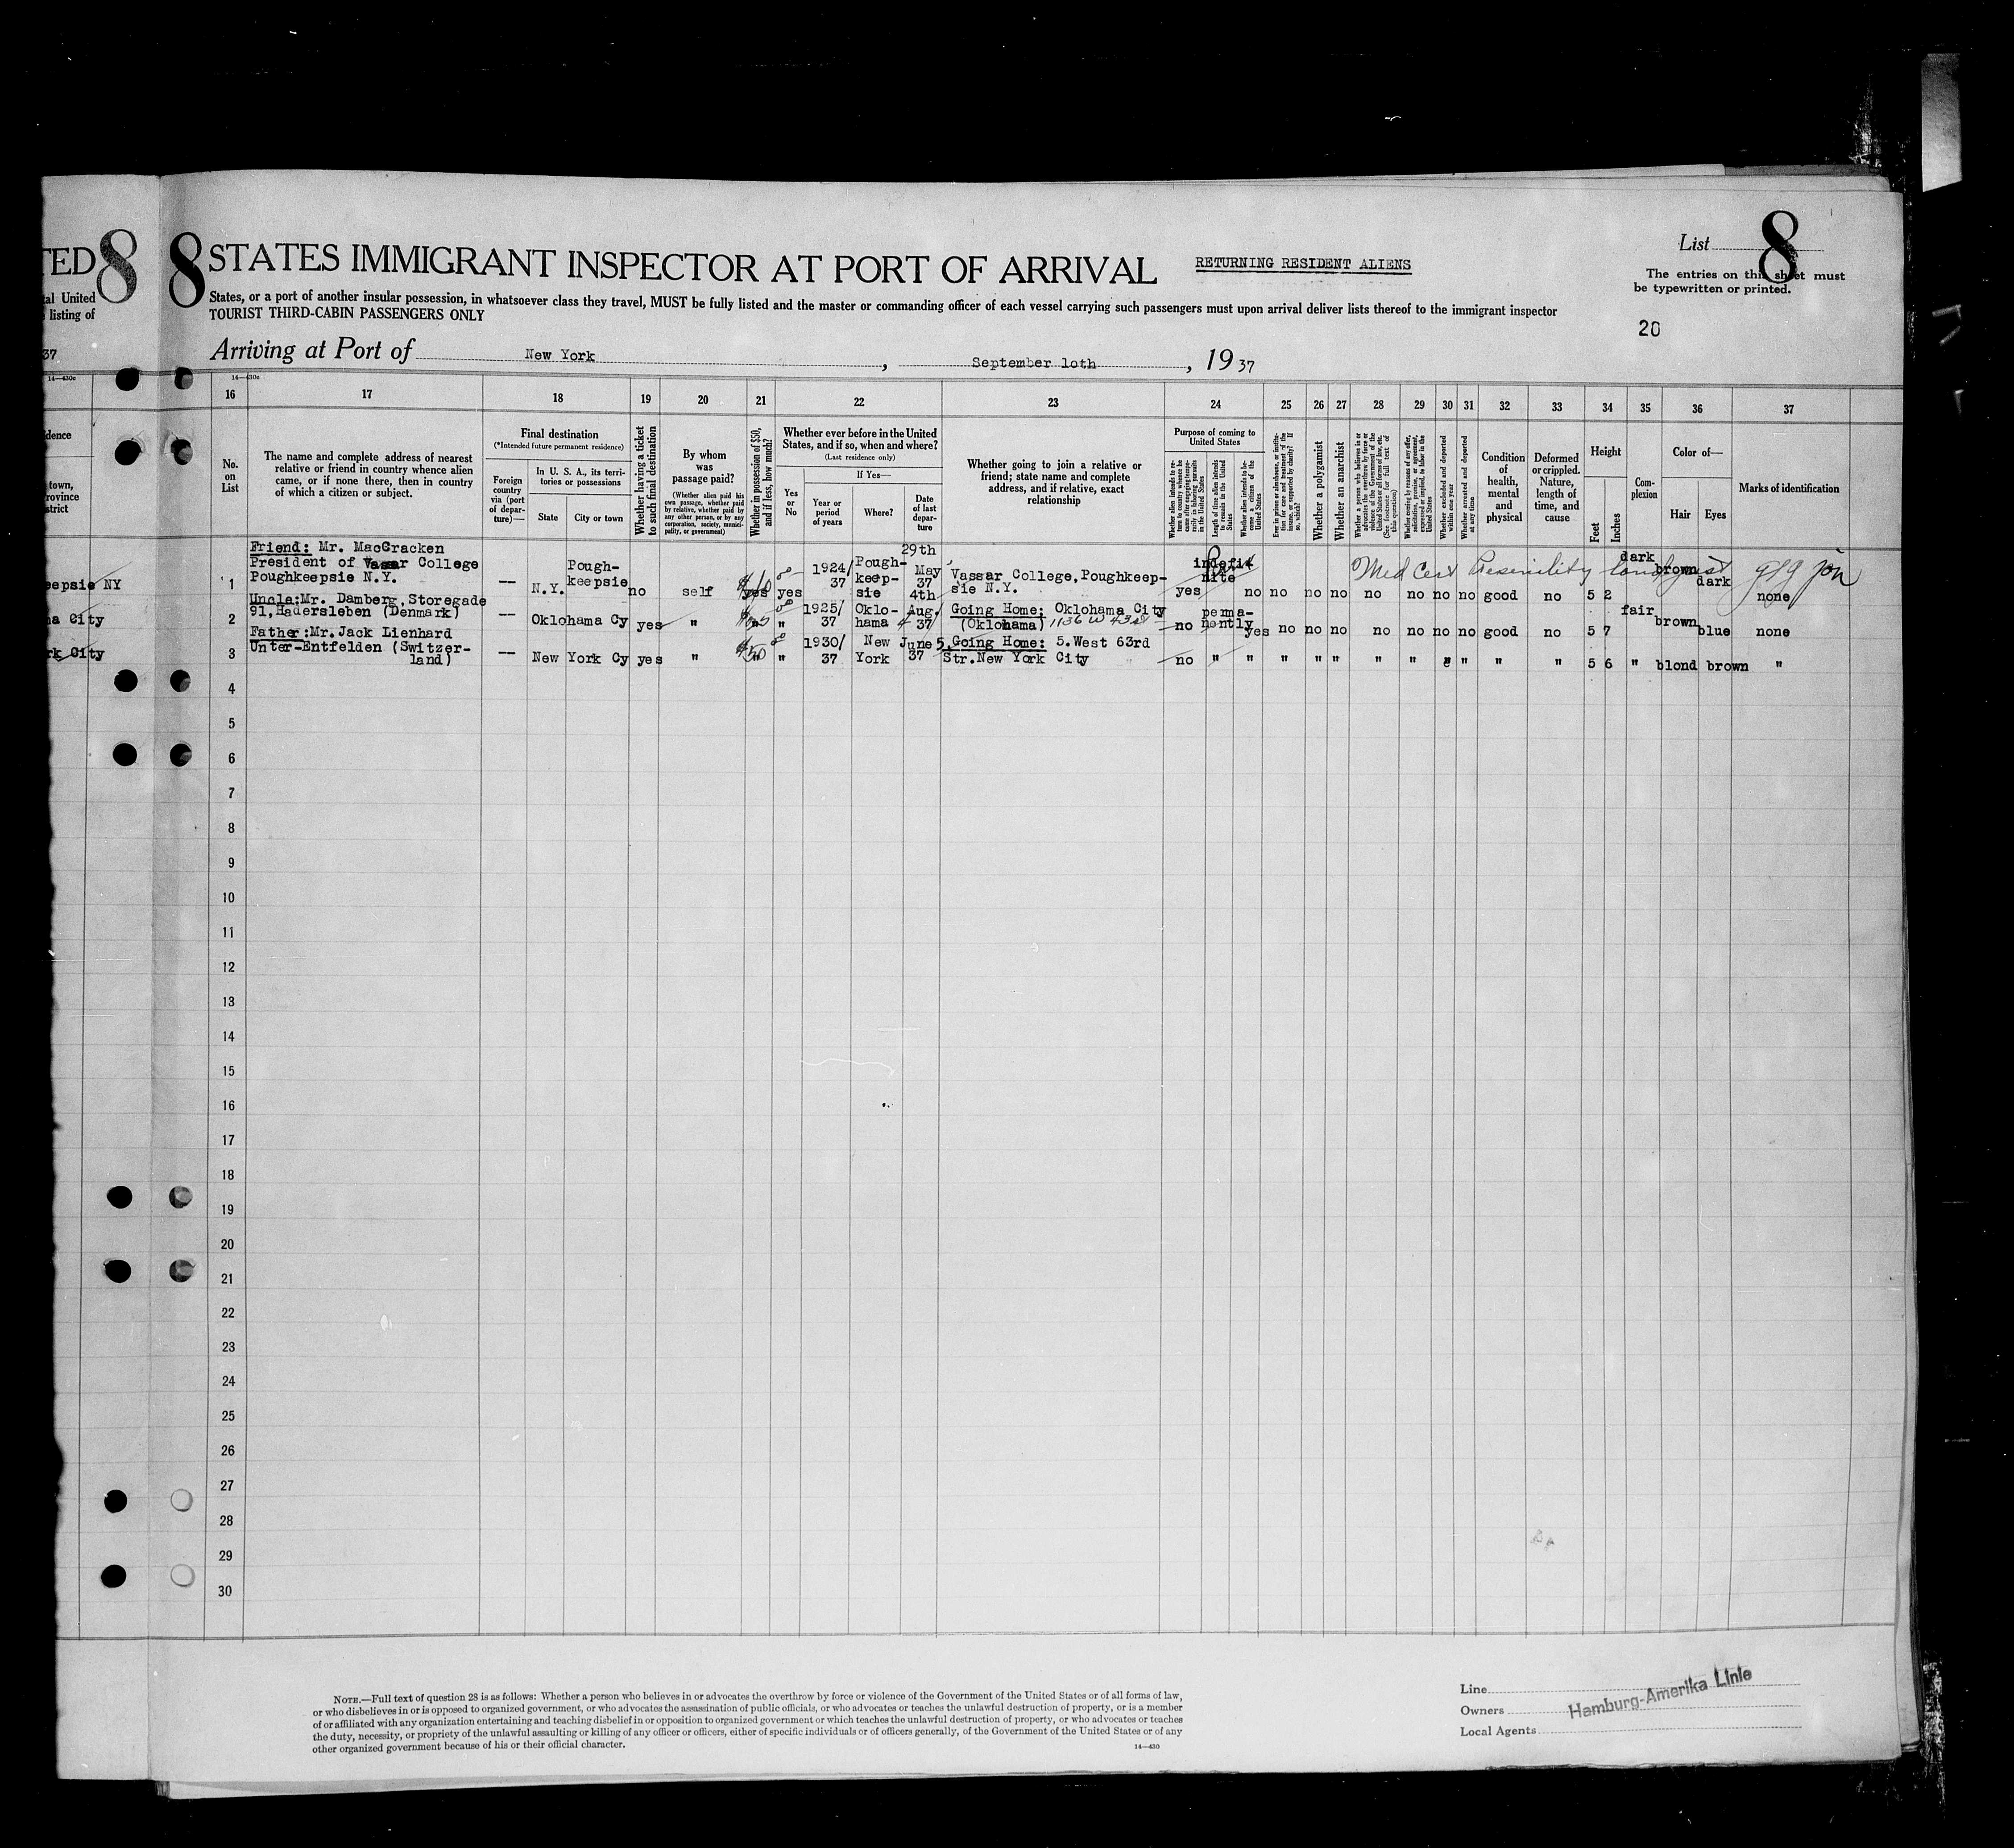 TED 8
8 STATES IMMIGRANT INSPECTOR AT PORT OF ARRIVAL
RETURNING RESIDENT ALIENS
List 8
The entries on this sheet must
be typewritten or printed.
20
al United
listing of
37
States, or a port of another insular possession, in whatsoever class they travel, MUST be fully listed and the master or commanding officer of each vessel carrying such passengers must upon arrival deliver lists thereof to the immigrant inspector
TOURIST THIRD-CABIN PASSENGERS ONLY
Arriving at Port of New York, September loth, 19 37
14—430c
14—430c
16 17 18 19 20 21 22 23 24 25 26 27 28 29 30 31 32 33 34 35 36 37
dence
town,
rovince
strict
No.
on
List
The name and complete address of nearest
relative or friend in country whence alien
came, or if none there, then in country
of which a citizen or subject.
Final destination
(*Intended future permanent residence)
Foreign
country
via (port
of depar-
ture)—
In U. S. A., its terri-
tories or possessions
State
City or town
Whether having a ticket
to such final destination
By whom
was
passage paid?
(Whether alien paid his
own passage, whether paid
by relative, whether paid by
any other person, or by any
corporation, society, munici-
pality, or government)
Whether in possession of $50,
and if less, how much?
Whether ever before in the United
States, and if so, when and where?
(Last residence only)
Yes
or
No
If Yes—
Year or
period
of years
Where?
Date
of last
depar-
ture
Whether going to join a relative or
friend; state name and complete
address, and if relative, exact
relationship
Purpose of coming to
United States
Whether alien intends to re-
turn to country whence he
came after engaging tempo-
rarily in laboring pursuits
in the United States
Length of time alien intends
to remain in the United
States
Whether alien intends to be-
come citizen of the
United States
Ever in prison or almshouse, or institu-
tion for care and treatment of the
insane, or supported by charity? If
so, which?
Whether a polygamist
Whether an anarchist
Whether a person who believes in or
advocates the overthrow by force or
violence of the Government of the
United States or all forms of law, etc.
(See footnote for full text of
this question)
Whether coming by reasons of any offer,
solicitation, promise, or agreement,
expressed or implied, to labor in the
United States
Whether excluded and deported
within one year
Whether arrested and deported
at any time
Condition
of
health,
mental
and
physical
Deformed
or crippled.
Nature,
length of
time, and
cause
Height
Feet
Inches
Com-
plexion
Color of—
Hair
Eyes
Marks of identification
eepsie NY
1
Friend: Mr. MacCracken
President of Vassar College
Poughkeepsie N.Y.
—
N.Y.
Pough-
keepsie
no self yes $10 yes
1924/
37
Pough-
keep-
sie
29th
May
37
Vassar College, Poughkeep-
sie N.Y.
yes
indefi-
nite
no no no no no no no no good no 5 2
dark
brown
dark
none
Med Cert
a City
2
Uncle: Mr. Damberg, Storegade
91, Hadersleben (Denmark)
— Oklohama Cy yes " " "
1925/
37
Oklo-
hama
4th
Aug.
37
Going Home: Oklohama City
(Oklohama) 1136 W 43rd
no
perma-
nently
yes no no no no no no no good no 5 7
fair
brown
blue
none
rk City
3
Father: Mr. Jack Lienhard
Unter-Entfelden (Switzer-
land)
— New York Cy yes " $50 "
1930/
37
New
York
June 5,
37
Going Home: 5. West 63rd
Str. New York City
no " " " " " " " " " " " 5 6 " blond brown "
4
5
6
7
8
9
10
11
12
13
14
15
16
17
18
19
20
21
22
23
24
25
26
27
28
29
30
NOTE.—Full text of question 28 is as follows: Whether a person who believes in or advocates the overthrow by force or violence of the Government of the United States or of all forms of law,
or who disbelieves in or is opposed to organized government, or who advocates the assassination of public officials, or who advocates or teaches the unlawful destruction of property, or is a member
of or affiliated with any organization entertaining and teaching disbelief in or opposition to organized government or which teaches the unlawful destruction of property, or who advocates or teaches
the duty, necessity, or propriety of the unlawful assaulting or killing of any officer or officers, either of specific individuals or of officers generally, of the Government of the United States or of any
other organized government because of his or their official character.
14—430
Line
Owners
Local Agents
Hamburg-Amerika Linie